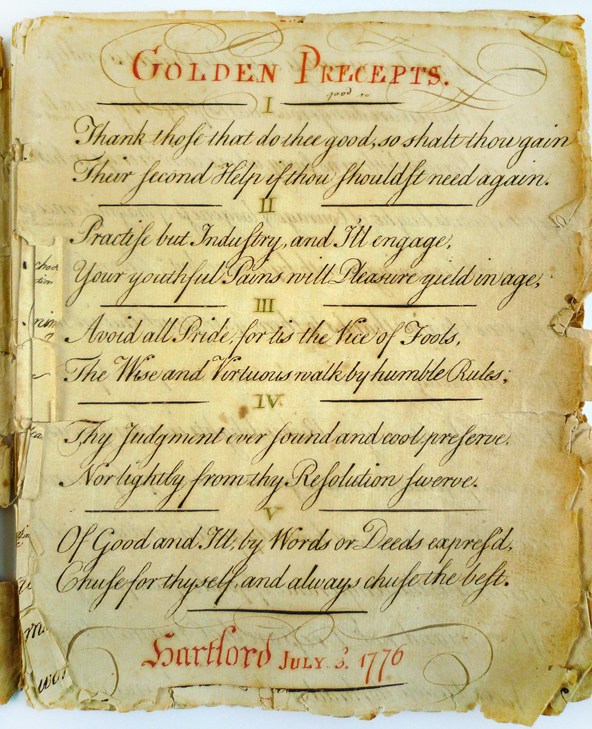 GOLDEN PRECEPTS.
good
I
Thank those that do thee good, so shalt thou gain
Their second Help if thou shouldſt need again.
II
Practiſe but Induſtry, and I'll engage,
Your youthful Pains will Pleasure yield in age;
III
Avoid all Pride, for tis the Vice of Fools,
The Wise and Virtuous walk by humble Rules;
IV
Thy Judgment ever ſound and cool preſerve,
Nor lightly from thy Reſolution ſwerve.
V
Of Good and Ill, by Words or Deeds expreſs'd,
Chuſe for thyself, and always chuſe the beſt.
Hartford JULY. 3. 1776